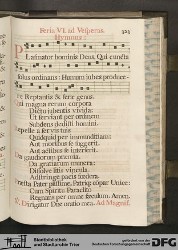 Feria VI. ad Vesperas
Hymnus.
Plasmator hominis Deus, Qui cuncta
solus ordinans: Humum jubes produce-
re Reptantis & feræ genus.
magna rerum corpora
Dictu jubentis vivida:
Ut serviant per ordinem
Subdens dedisti homini.
Repelle a servulis
Quidquid per immunditiam:
Aut moribus se suggerit,
Aut actibus se interserit.
Da gaudiorum præmia,
Da gratiarum munera:
Dissolve litis vincula,
Adstringe pacis fœdera.
Præsta Pater piissime, Patrique compar Unice:
Cum Spiritu Paraclito
Regnans per omne sæculum. Amen.
Dirigatur Dne oratio mea. Ad Magnif.
Stiftsbibliothek
gefördert durch
DFG
Deutsche Forschungsgemeinschaft